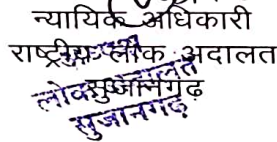 न्यायिक अधिकारी
राष्ट्रीय लोक अदालत
सुजानगढ़
लोक अदालत
सुजानगढ़